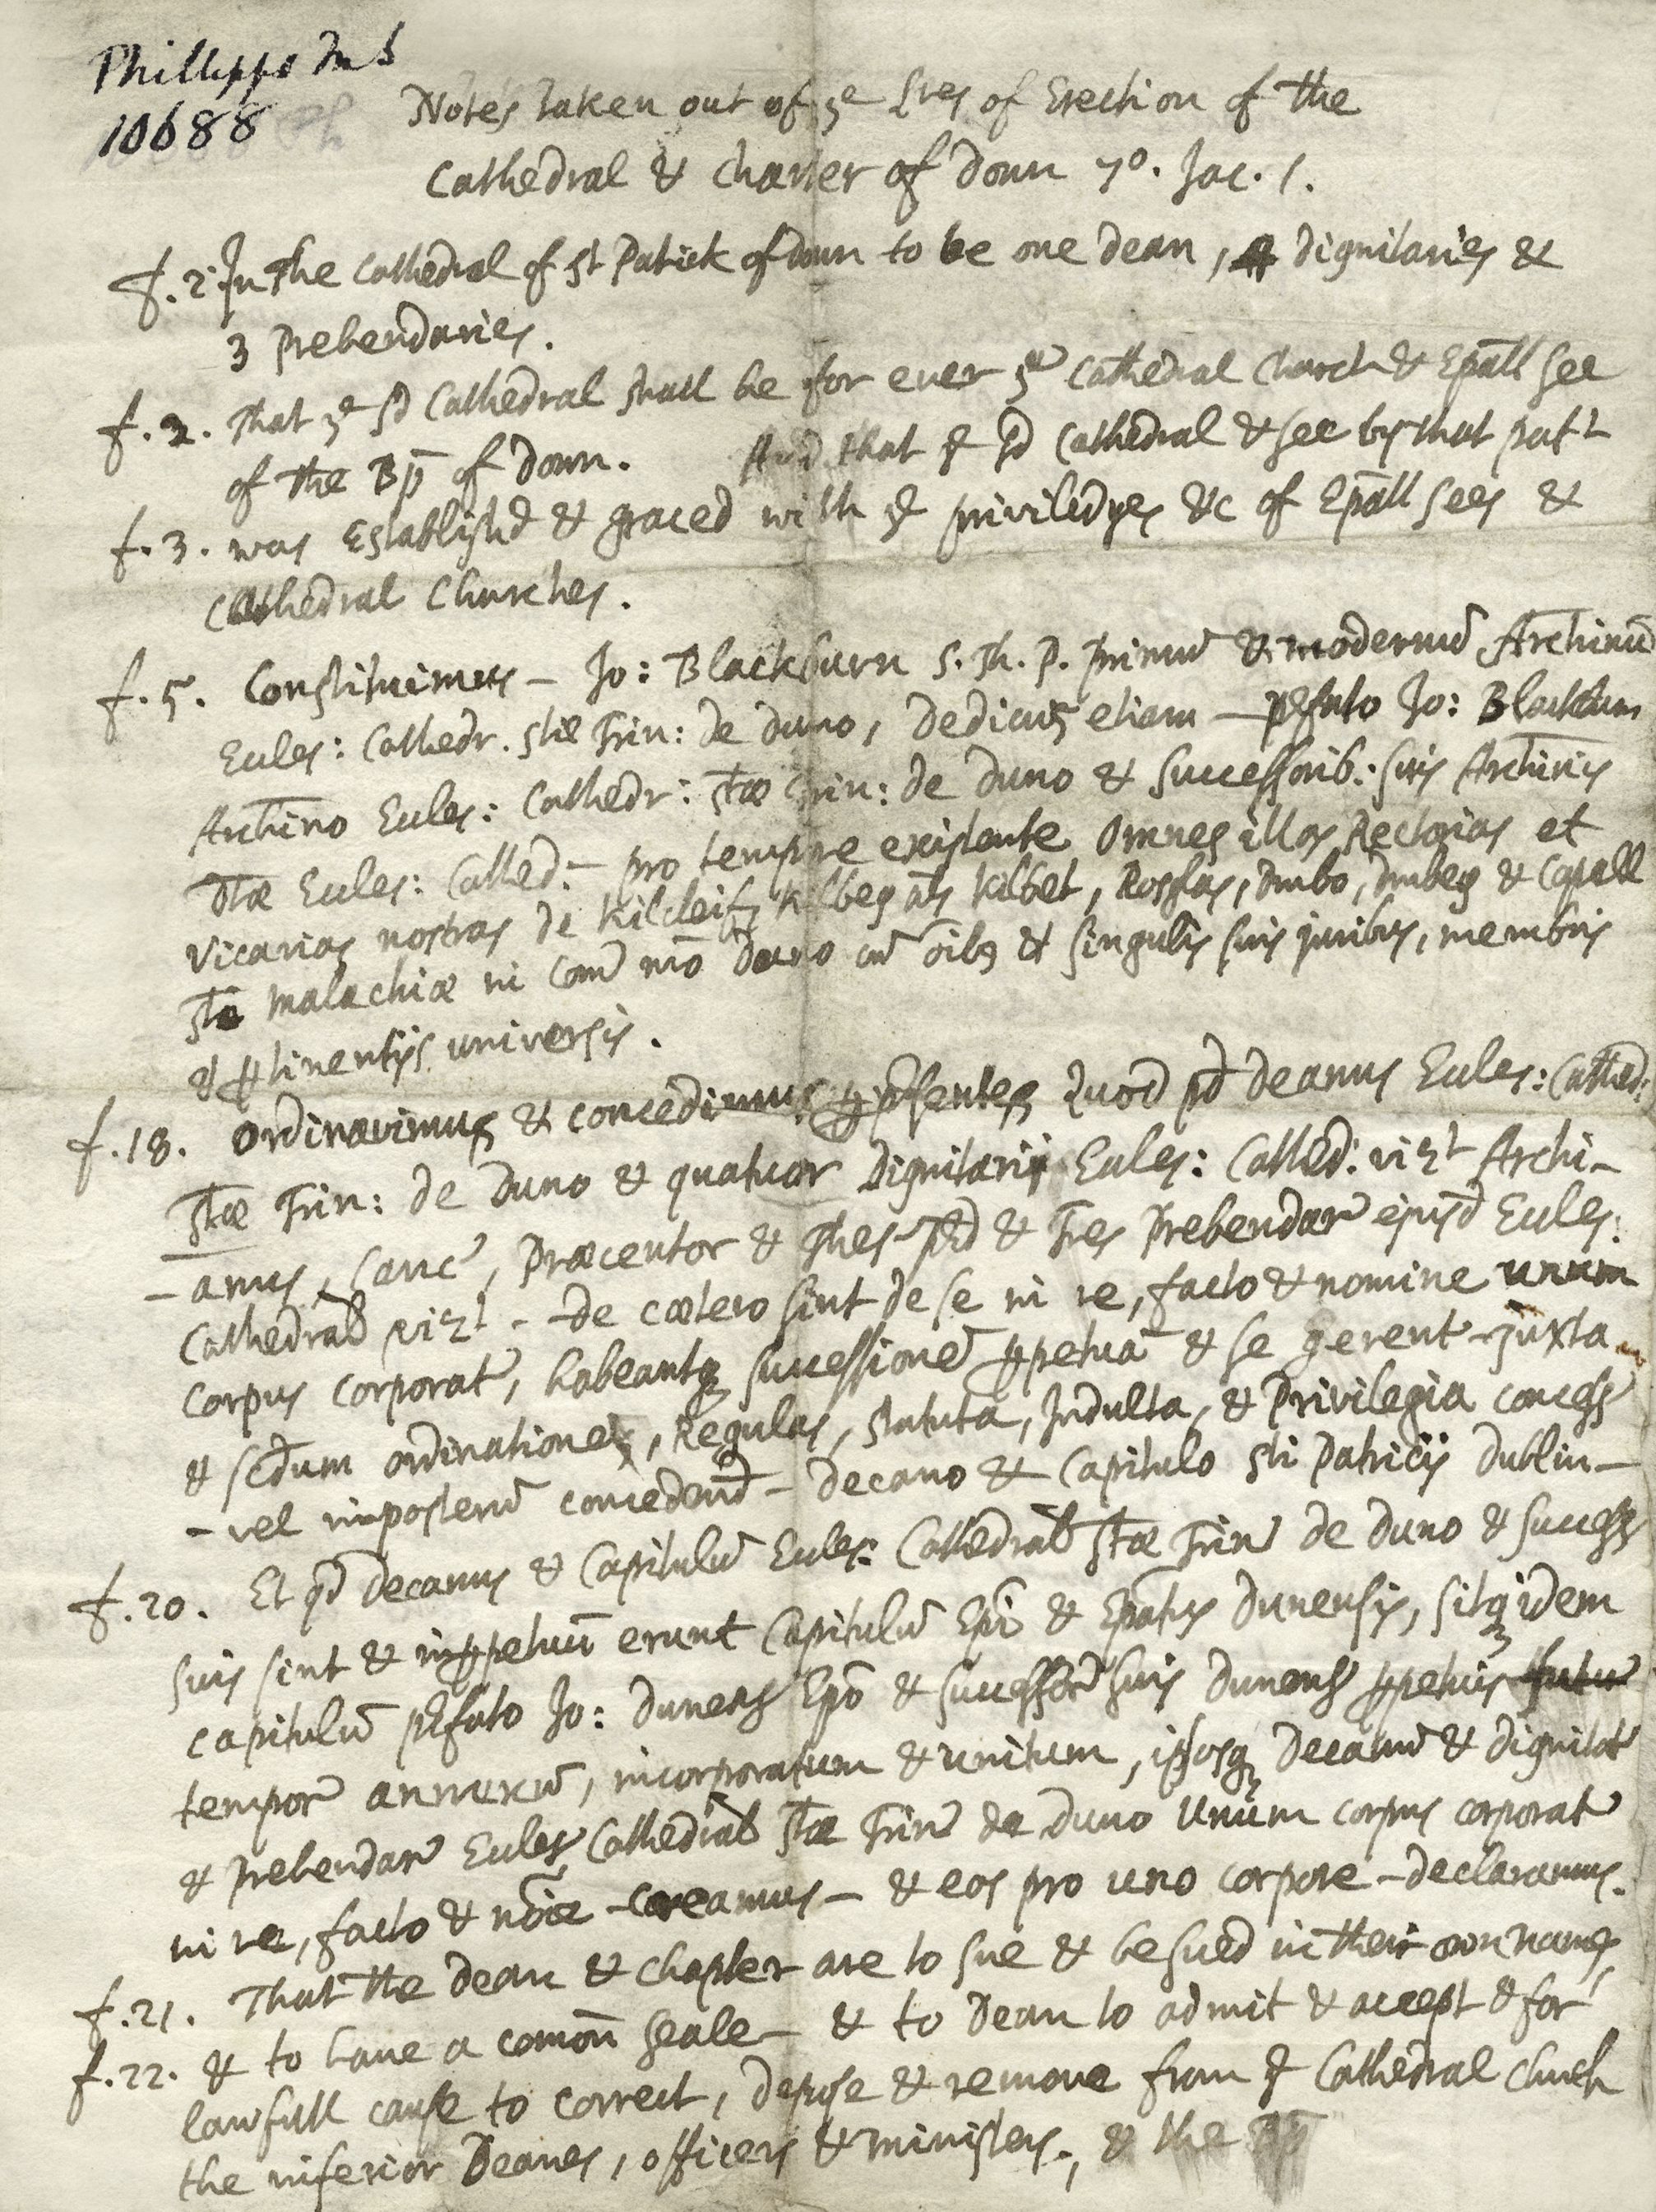 Phillipps MS
10688
Notes taken out of ye Lres of Erection of the
Cathedral & Chapter of Down 7o. Jac. 1.
f. 2. In the Cathedral of St Patrick of Down to be one Dean, 4 Dignitaries &
3 Prebendaries.
f. 2. That ye sd Cathedral shall be for ever ye Cathedral Church & Epall See
of the Bp̄ of Down. And that ye sd Cathedral & see by that patt
f. 3. was Establishd & graced with ye priviledges &c of Epāll sees &
Cathedral Churches.
f. 5. Constituimus – Jo: Blackburn S. Th. P. primū & modernū Archinū
Eccles: Cathedr. Stæ Trin: de Duno, Dedimus etiam – prefato Jo: Blackburn
Archino Eccles: Cathedr: Stæ Trin: de Duno & Successorib: suis Archinis
Dtæ Eccles: Cathed: – pro tempore existente Omnes illas Rectorias et
Vicarias nostras de Kilcleif, Kilbeg als Kilbet, Rossglas, Dunbo, Dunbeg & Capell
Sti Malachiæ in Com nro Duno cū oibs & singulis suis juribus, membris
& ptinentijs universis.
f. 18. Ordinavimus & concedimus p psentes Quod pd Deanus Eccles: Cathed:
Stæ Trin: de Duno & quatuor Dignitarij Eccles: Cathed: vizt Archi-
-anus, Canc, Præcentor & Thes pred & Tres Prebendar ejusd Eccles:
Cathedral vizt - - de cætero sint de se in re, facto & nomine unum
Corpus corporat, habeantq successionē ppetuā & se gerent juxta
& scdum ordinationes, Regulas, Statuta, Indulta, & Privilegia concess
– vel imposterū concedend – Decano & Capitulo Sti Patricij Dublin –
f. 20. Et qd Decanus & Capitulū Eccles: Cathedral Stæ Trin de Duno & success
suis sint & in ppetuū erunt Capitulū Epi & Epatus Dunensis, sitq idem
capitulū prefato Jo: Dunens Epo & successor suis Dunens ppetuis futur
tempor annexū, incorporatum & unitum, ipsosq Decanū & dignitat
& Prebendar Eccles Cathedral Stæ Trin de Duno Unum corpus corporat
in re, facto & noie – creamus – & eos pro uno corpore – declaramus.
f. 21. That the Dean & Chapter are to sue & be sued in their own names,
f. 22. & to have a comon Seale – & to Dean to admit & accept & for
lawfull cause to correct, depose & remove from ye Cathedral Church
the inferior Deanes, officers & ministers., & the Bp